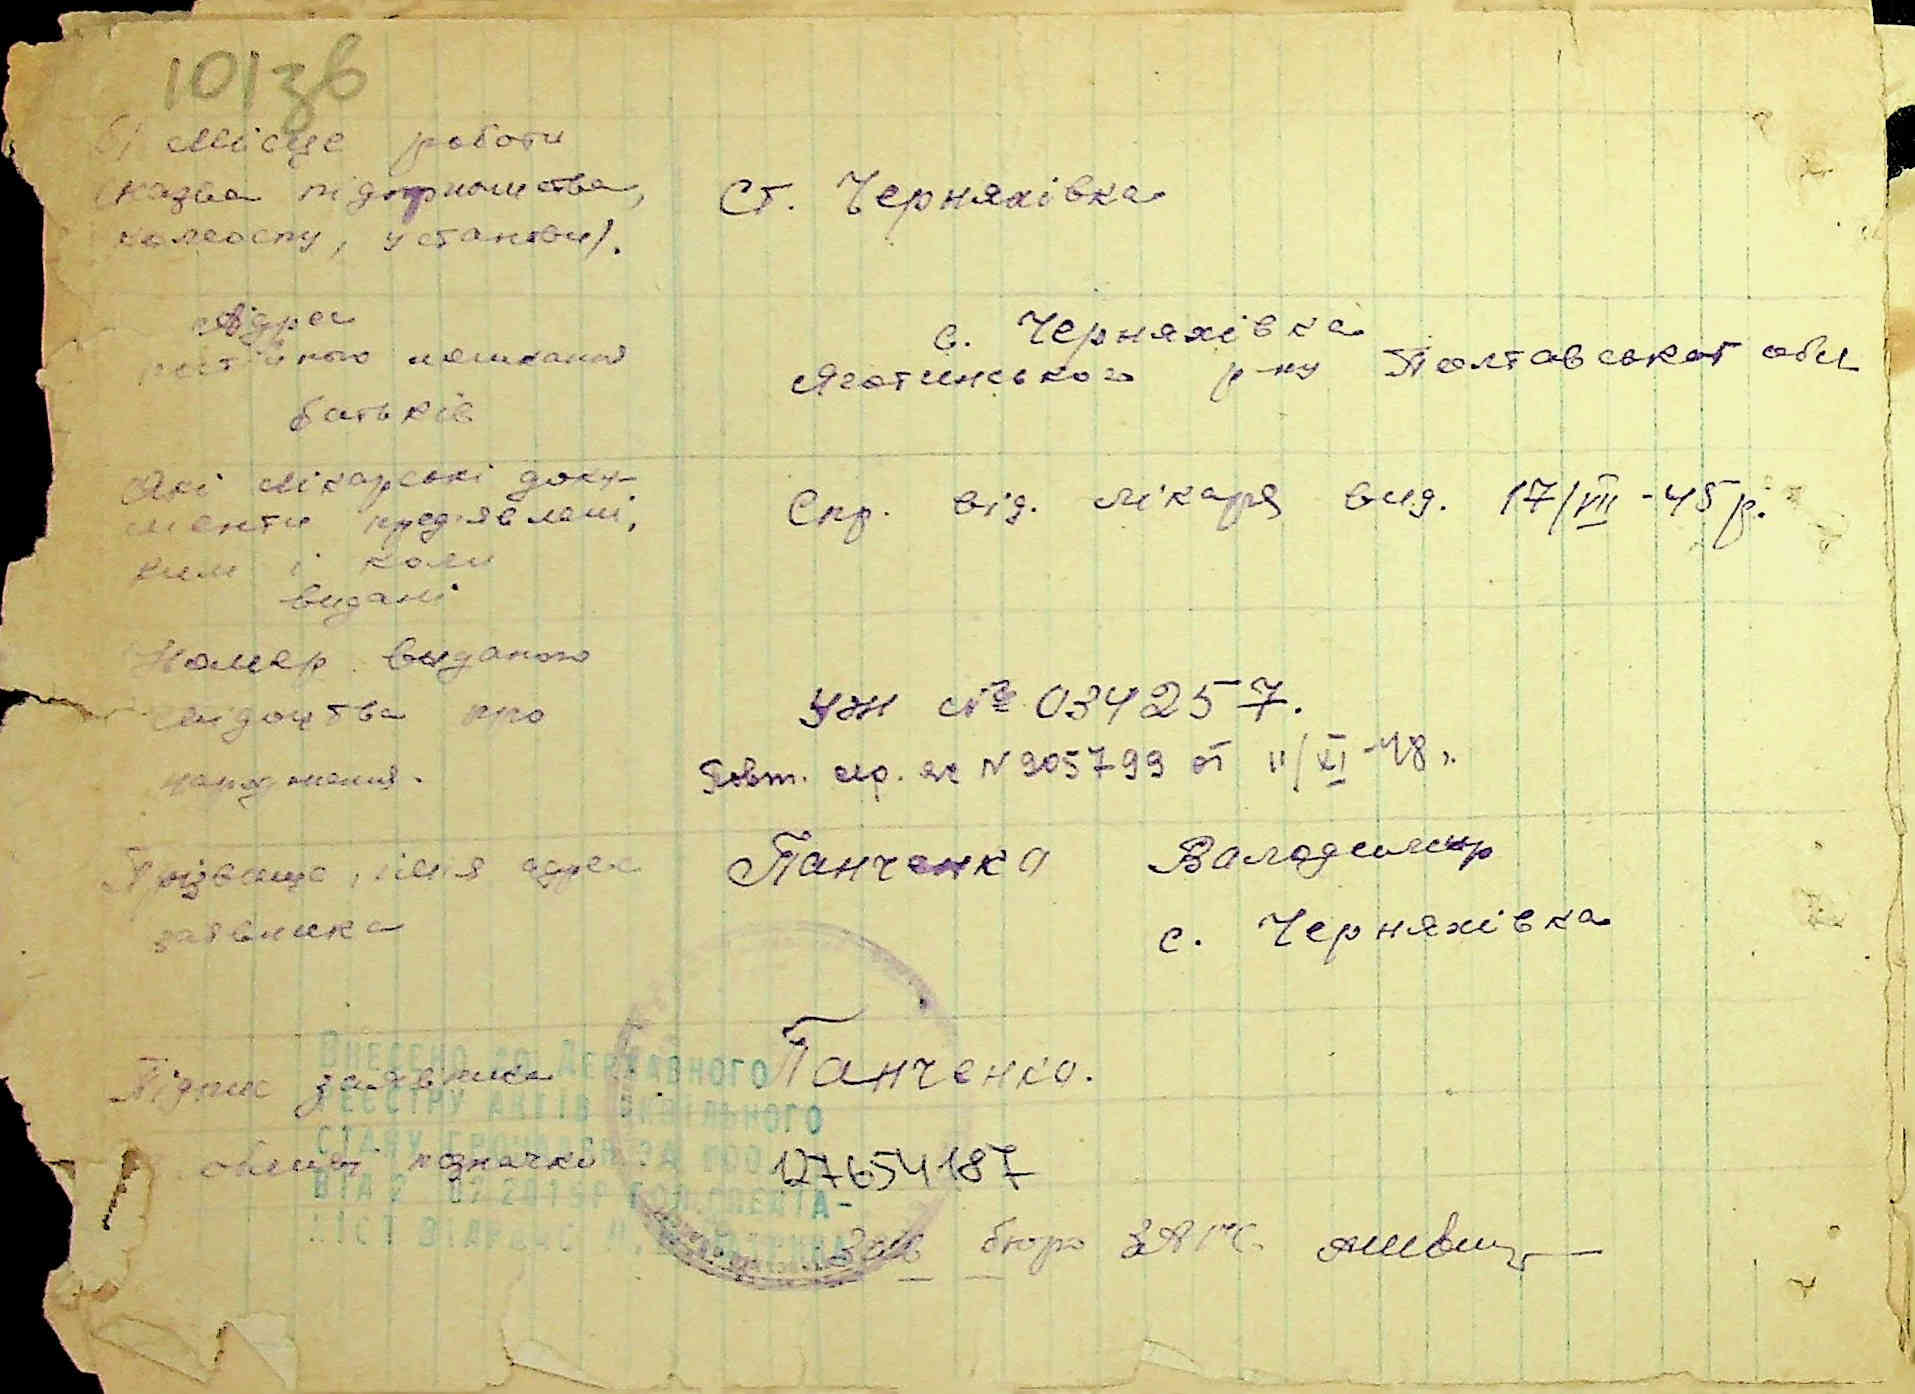 101зв
б) Місце роботи
(назва підприємства,
колгоспу, установи).
ст. Черняхівка
Адреса
постійного мешкання
батьків
с. Черняхівка
Яготинського р-ну Полтавської обл
Які лікарські доку-
менти пред'явлені,
ким і коли
видані
Спр. від. лікаря вид. 17/VII -45 р.
Номер виданого
свідоцтва про
народження.
УЖ № 034257.
Повт. N 905799 от 11/XI -48 г.
Прізвище, ім'я адрес
заявника
Панченко Володимир
с. Черняхівка
Підпис заявника
Панченко.
позначки
127654187
Внесено до Державного
реєстру актів цивільного
стану громадян за
Зав бюро ЗАГС